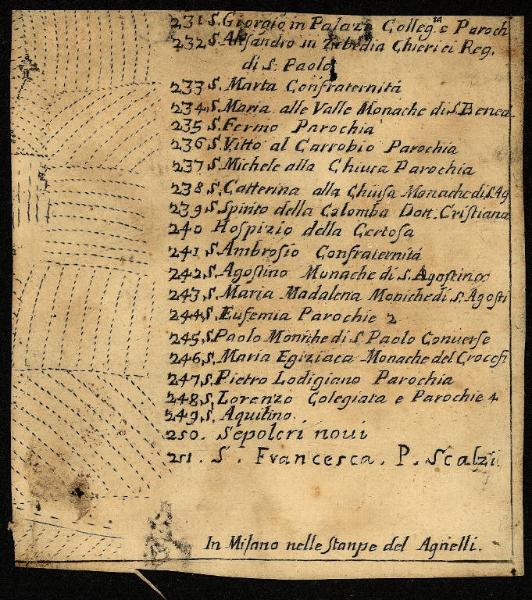 231 S. Giorgio in Palazo Colleg.ta e Paroch
232 S. Alesandro in Zebedia Chierici Reg.
di S. Paolo
233 S. Marta Confraternitá
234 S. Maria alle Valle Monache di S. Bened
235 S. Fermo Parochia
236 S. Vitto al Carrobio Parochia
237 S. Michele alla Chiusa Parochia
238 S. Catterina alla Chiusa Monache di S. Ag
239 S. Spirito della Calomba Dott. Cristiana
240 Hospizio della Certosa
241 S. Ambrosio Confraternitá
242 S. Agostino Monache di S. Agostino
243 S. Maria Madalena Moniche di S. Agosti
244 S. Eufemia Parochie 2
245 S. Paolo Moniche di S. Paolo Converse
246 S. Maria Egiziaca Monache del Crocefi
247 S. Pietro Lodigiano Parochia
248 S. Lorenzo Colegiata e Parochie 4
249 S. Aquilino
250. Sepolcri noui
251. S. Francesca. P. Scalzi
In Milano nelle Stanpe del Agnelli.